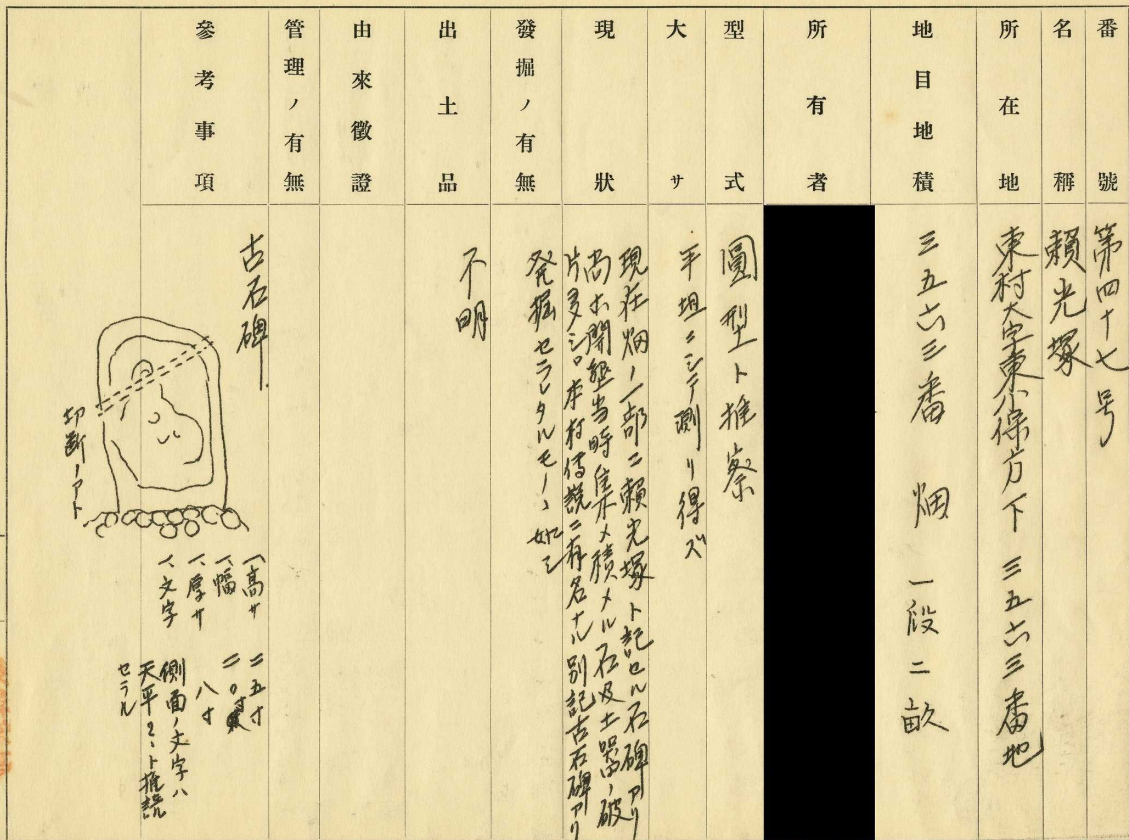 番號
第四十七号
名稱
賴光塚
所在地
東村大字東小保方下 三五六三番地
地目地積
三五六三番 畑 一段二畝
所有者
型式
圓型ト推察
大サ
平坦ニシテ測リ得ズ
現狀
現在畑ノ一部ニ賴光塚ト記セル石碑アリ
尚ホ開墾当時集メ積メル石及土器ノ破
片多シ。本村傳説ニ有名ナル別記古石碑アリ
發掘ノ有無
発掘セラレタルモノヽ如シ
出土品
不明
由來徵證
管理ノ有無
參考事項
古石碑
切断ノアト
一、高サ 二五寸
一、幅 二〇寸
一、厚サ 八寸
一、文字 側面ノ文字ハ
天平
セラル